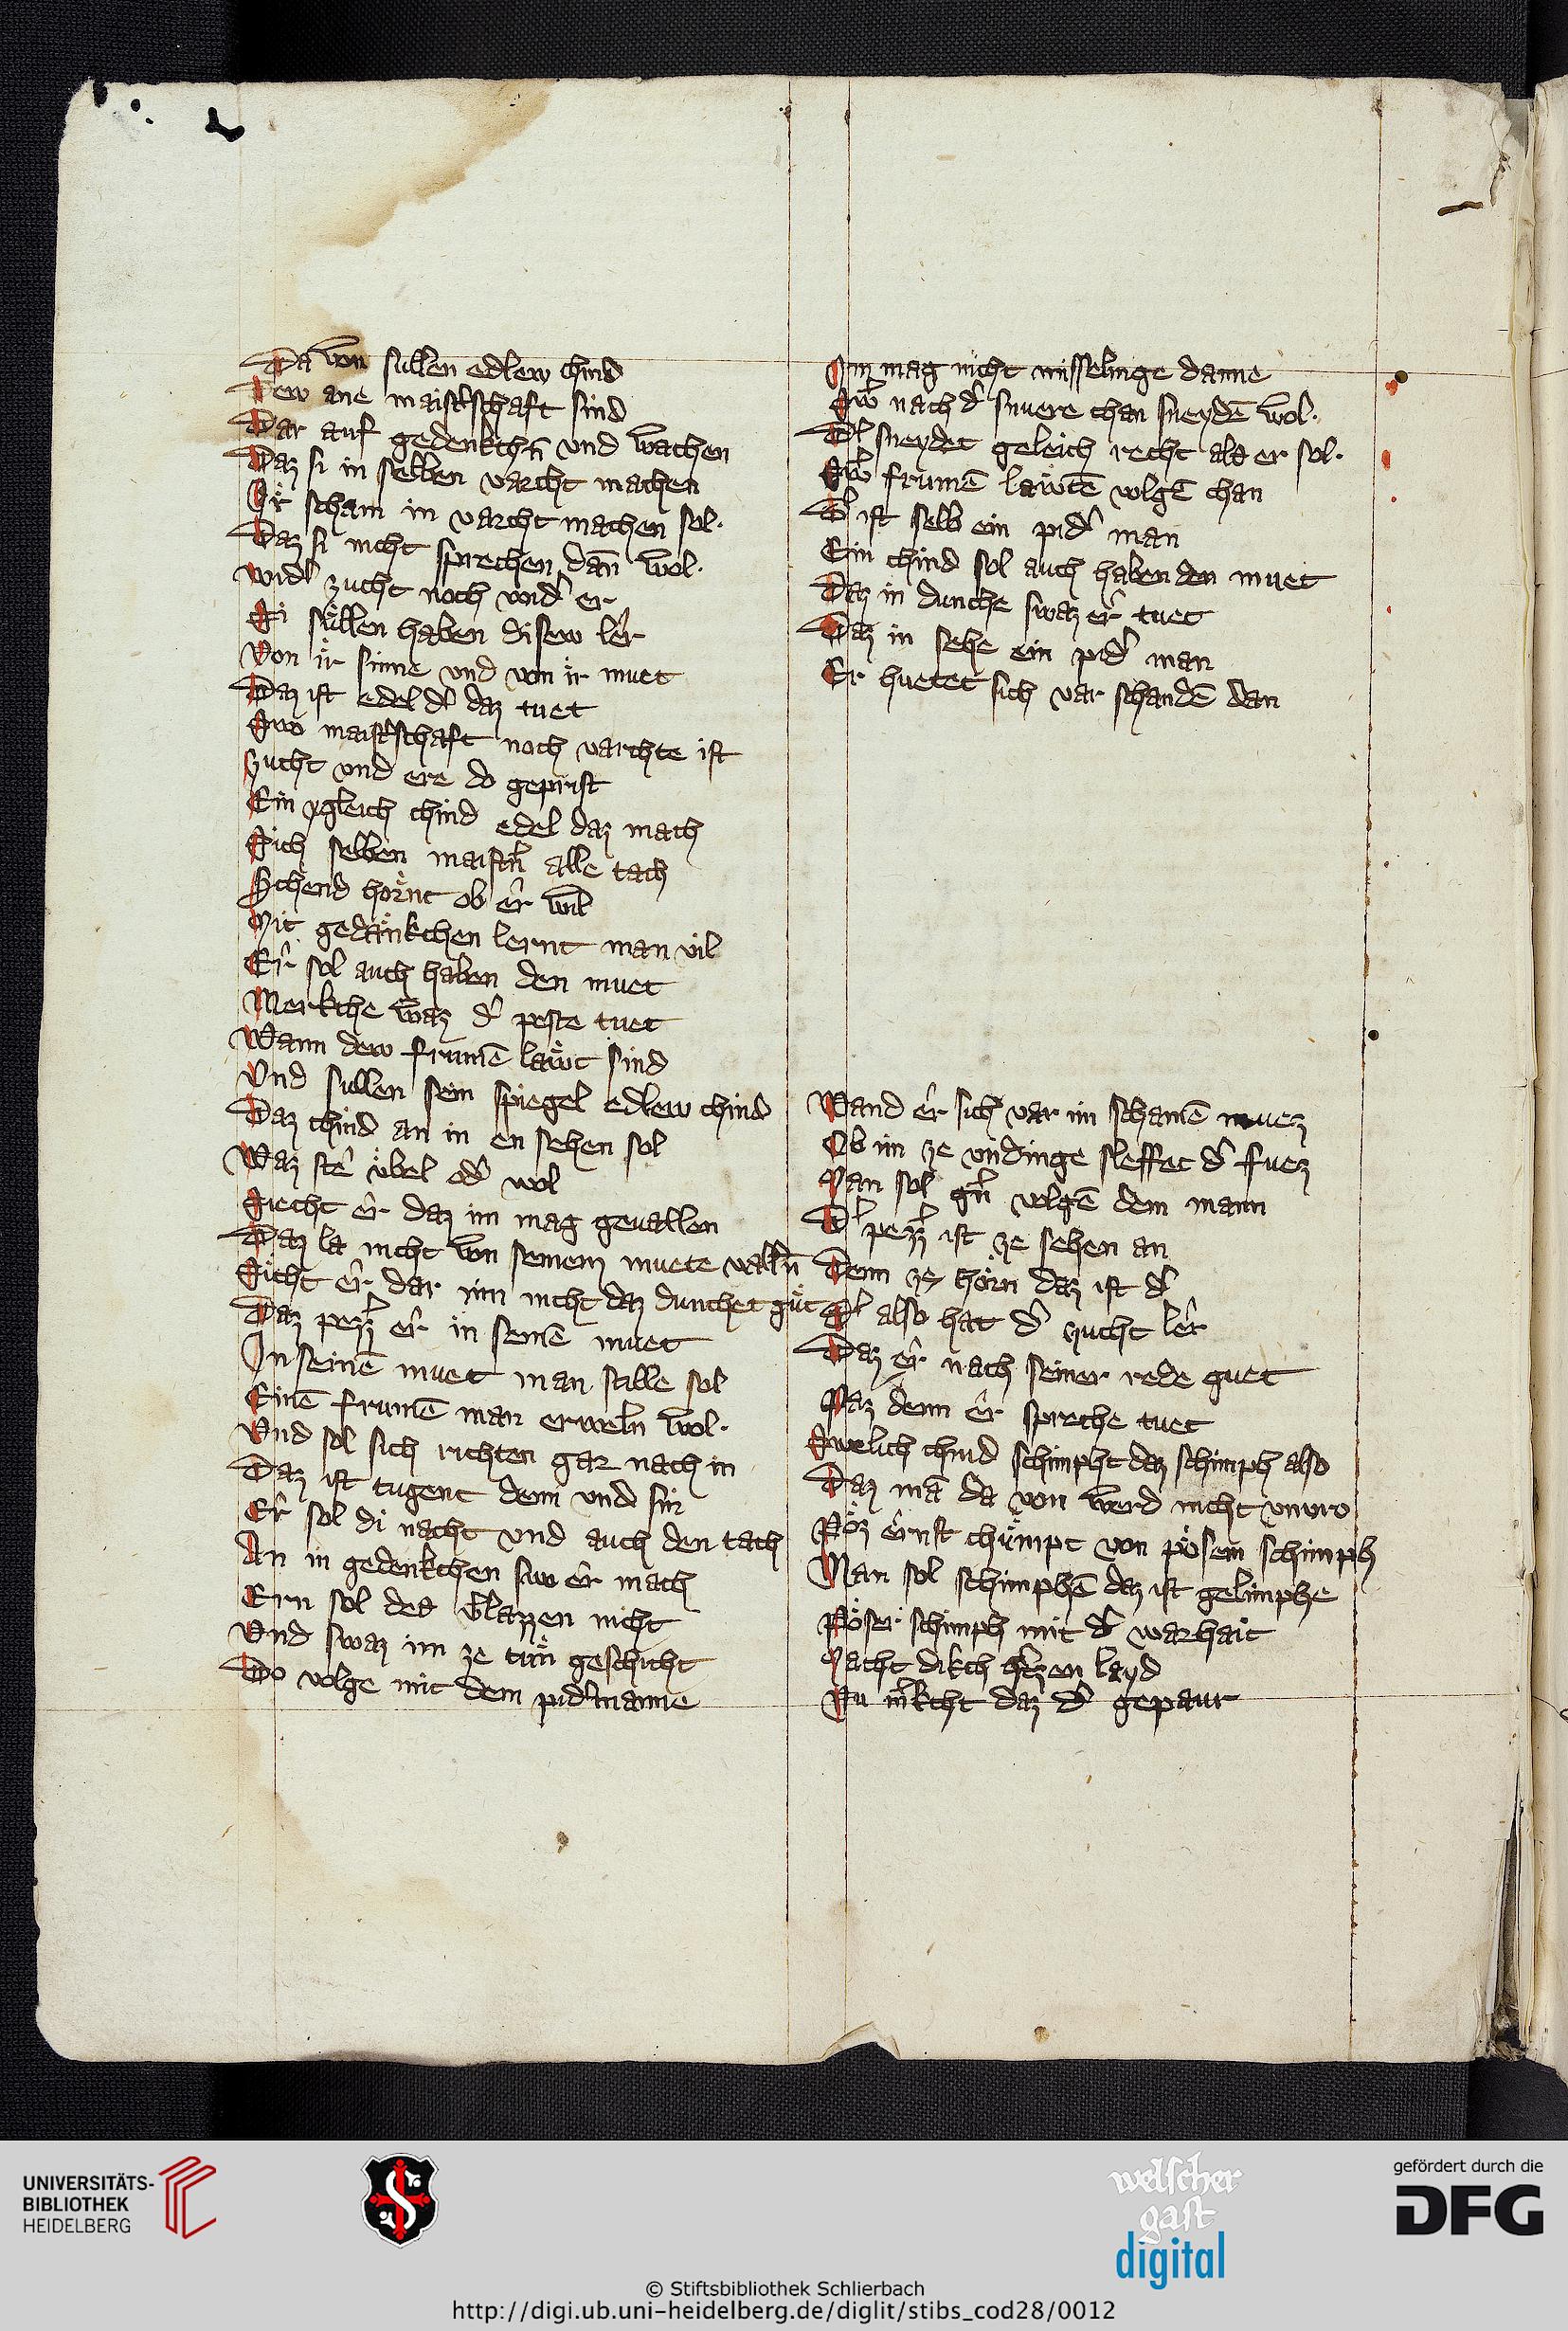 Da von sullen edlew chind
Dew ane maist'schaft sind
Dar auf gedenkchn̄ und wachen
Daz si in selben varcht machen
Ir scham in varcht machen sol.
Daz si nicht sprechen dan̄ wol.
wid' zucht noch wid' er
Si süllen haben disew ler
Von ir sinne und von ir muet
Daz ist edel d' daz tuet
Swo maist'schaft noch varchte ist
zucht und ere do geprist
Ein ygleich chind edel daz mach
Sich selben maistn̄ alle tach
Schend hörnt ob er wil
Mit gedänkchen lernt man vil
Er sol auch haben den muet
Merkche waz d' peste tuet
Wann dew frumē läwt sind
Und sullen sein spiegel edlew chind
Daz chind an in en sehen sol
Waz stê übel od' wol
Siecht er daz im mag gevallen
Daz la nicht von seinem muete valln̄
Sicht er dar inn nicht daz dunchet güt
Daz pezz' er in seinē muet
In seinē muet man stille sol
Einē frumē man erweln wol.
Und sol sich richten gar nach in
Daz ist tugent denn und sin
Er sol di nacht und auch den tach
An in gedenkchen swo er mach
Ern sol des v'lazzen nicht
Und swaz im ze tün geschicht
Do volge mit dem pid'manne
Im mag nicht misselinge danne
Sw' nach d' snuere chan sneydē wol.
D' sneydet geleich recht als er sol.
Sw' frumē läwtē volgē chan
D' ist selb ein pid' man
Ein chind sol auch haben den muet
Daz in dunche swaz er tuet
Daz in sehe ein pid' man
Er huetet sich var schandē dan
Wand er sich var im schamē muez
Ob im ze undinge sleffet d' fuez
Man sol g'n̄ volgē dem mann
D' pezz' ist ze sehen an
Denn ze hörn daz ist d'
D' also hat d' zucht ler
Daz er nach seiner rede guet
Paz denn er spreche tuet
Swelich chind schimpht daz schimph also
Daz mā da von werd nicht unvro
Pöz ernst chümpt von pösem schimph
Man sol schimphē daz ist gelimphe
Pöser schimph mit d' warhait
Macht dikch h'tzen layd
Nu m'kcht daz d' gepaur
UNIVERSITÄTS-
BIBLIOTHEK
HEIDELBERG
welscher
gast
digital
gefördert durch die
DFG
© Stiftsbibliothek Schlierbach
http://digi.ub.uni-heidelberg.de/diglit/stibs_cod28/0012